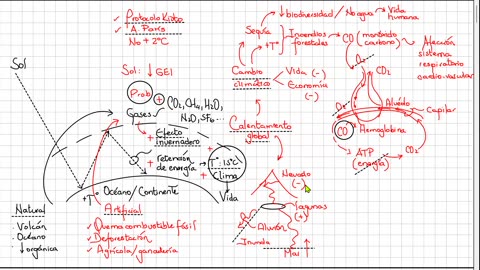 ✓ Protocolo Kioto
✓ A. París
No + 2°C
Sol
Sol: ↓ GEI
Prob
Gases
CO₂, CH₄, H₂O,
N₂O, SF₆...
+ Efecto
invernadero
+ retención
de energía
+ T° 15°C
Clima
Vida
+T°
Océano/Continente
Natural
- Volcán
- Océano
- ↓ orgánica
Artificial
✓ Quema combustible fósil
✓ Deforestación
✓ Agrícola/ganadería
↓ biodiversidad / No agua → Vida
humana
Sequía
+T°
Incendios
forestales
CO (monóxido
carbono)
Afección
sistema
respiratorio
cardio-vascular
Cambio
climático
Vida (-)
Economía
(-)
Calentamiento
global
O₂
CO₂
Alveolo
Capilar
O₂
CO
Hemoglobina
ATP
(energía)
CO₂
Nevado
(-)
Lagunas
(+)
Aluvión
Inunda
Mar ↑